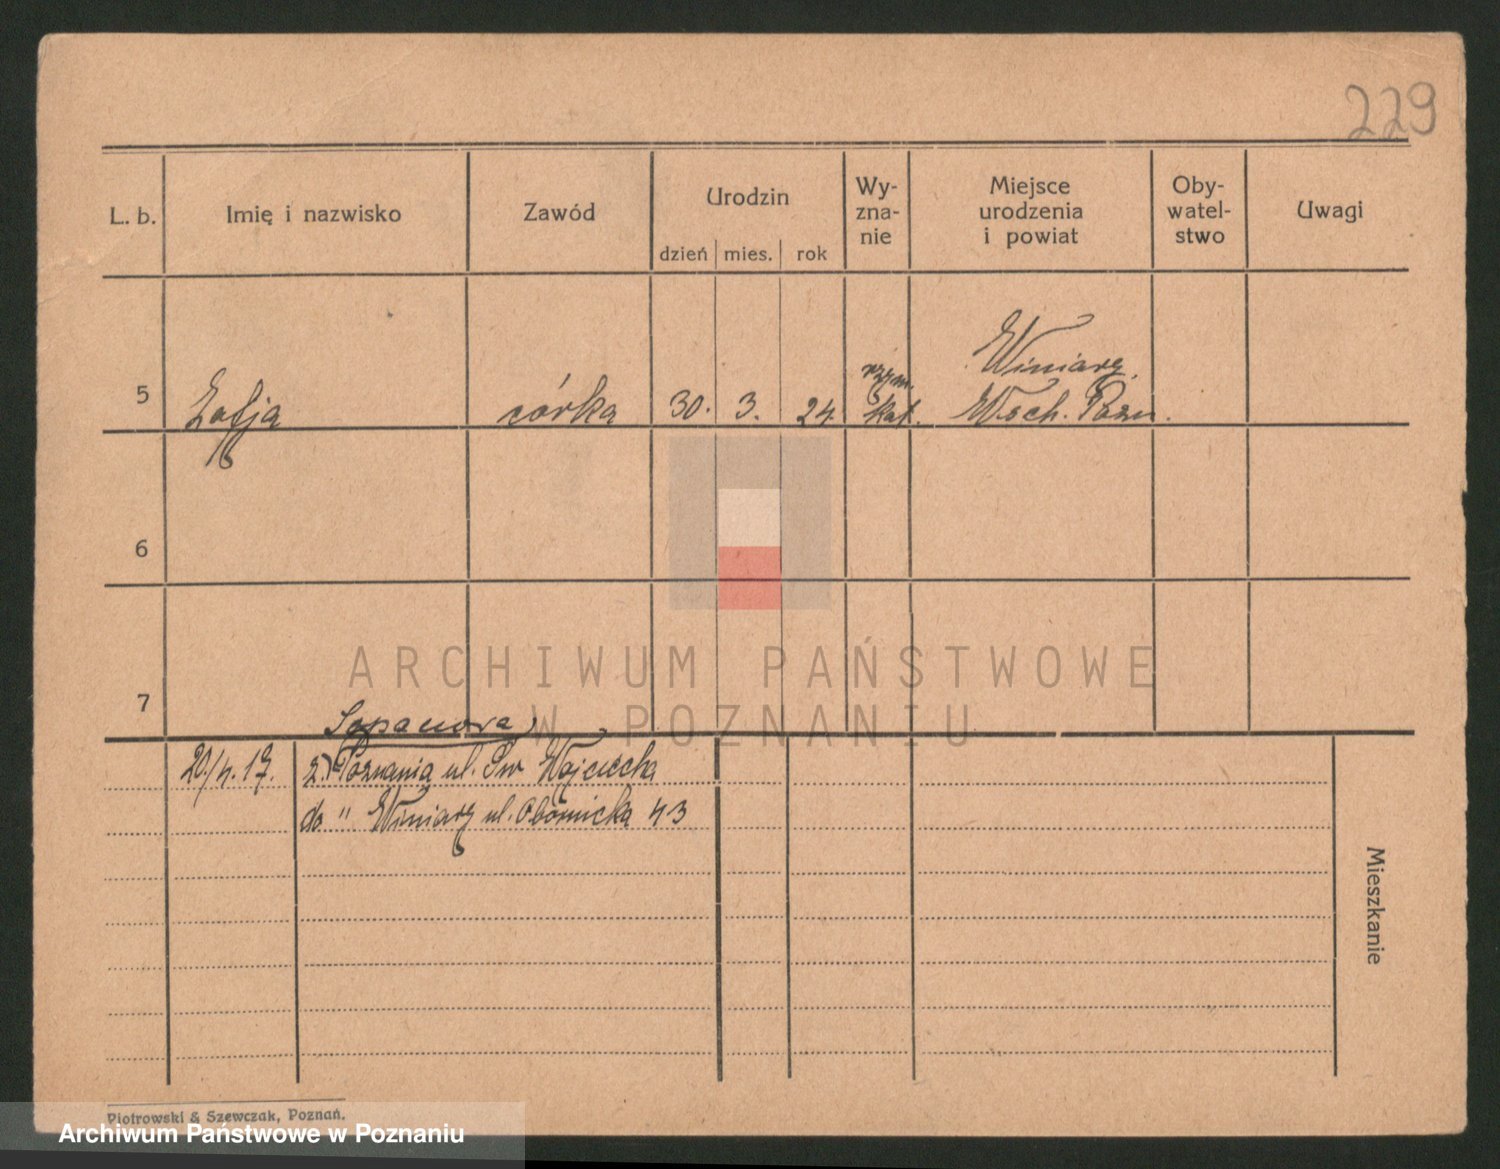 229
L. b. Imię i nazwisko Zawód Urodzin Wy- zna- nie Miejsce urodzenia i powiat Oby- watel- stwo Uwagi
dzień mies. rok
Winiary.
rzym.
5 Zofja córka 30. 3. 24. kat. Wsch. Pozn.
6
ARCHIWUM PAŃSTWOWE
7
W POZNANIU
20./4. 17. z. Poznania ul. Św Wojciecha
do " Winiary ul. Obornicka 43
Mieszkanie
Piotrowski & Szewczak, Poznań.
Archiwum Państwowe w Poznaniu